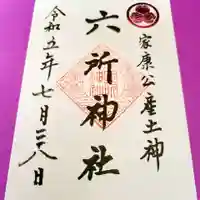 家康公産土神
六所神社
令和五年七月二八日